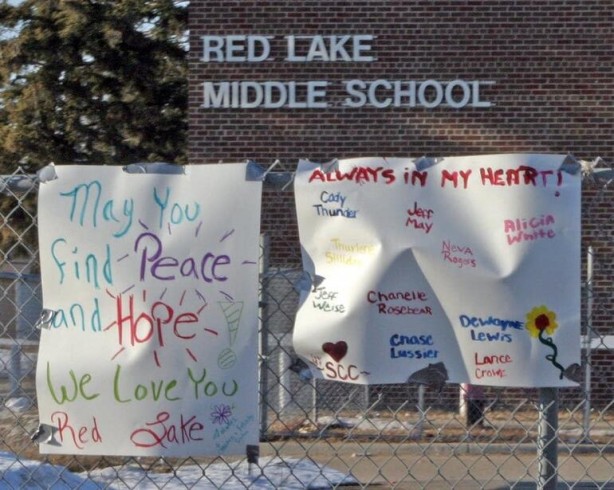 RED LAKE
MIDDLE SCHOOL
May You
find Peace
and Hope
We Love You
Red Lake
ALWAYS IN MY HEART!
Cody
Thunder
Jeff
May
Alicia
White
Thurlene
Neva
Rogers
Jeff
Weise
Chanelle
Rosebear
Chase
Lussier
DeWayne
Lewis
Lance
Crowe
SCC